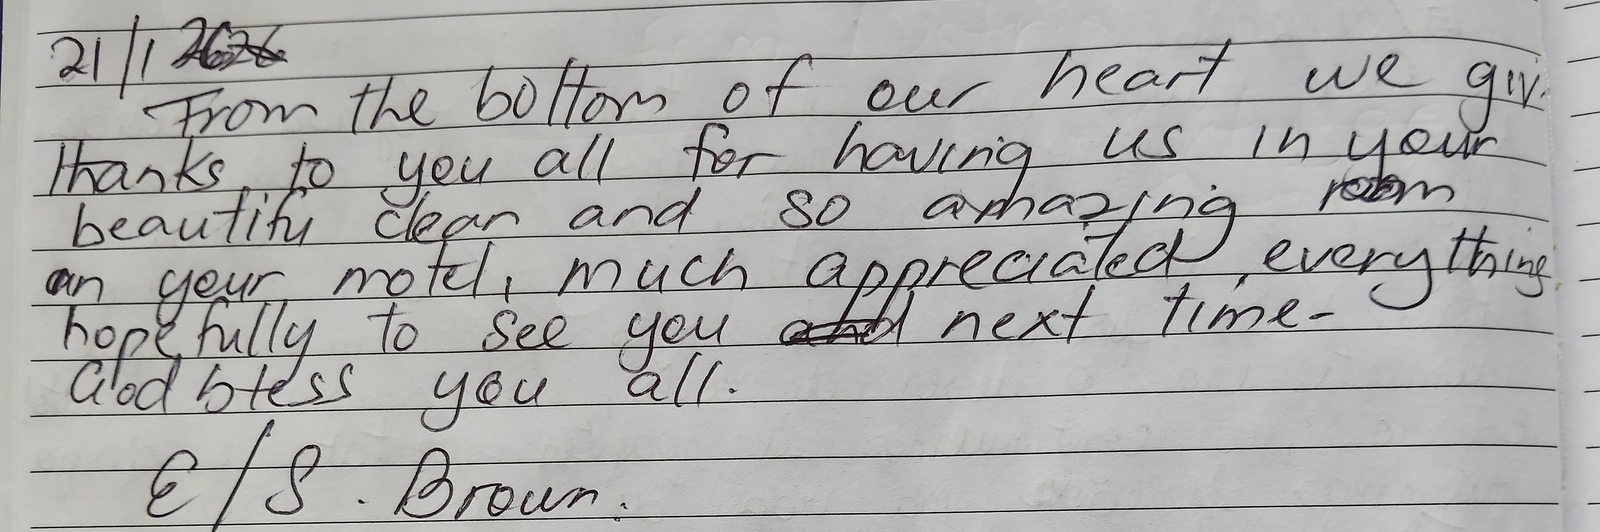 21/1 2026
From the bottom of our heart we giv.
thanks, to you all for having us in your
beautifu clean and so amazing room
an your motel, much appreciated, everything
hopefully to see you next time-
God bless you all.
E/S. Brown.